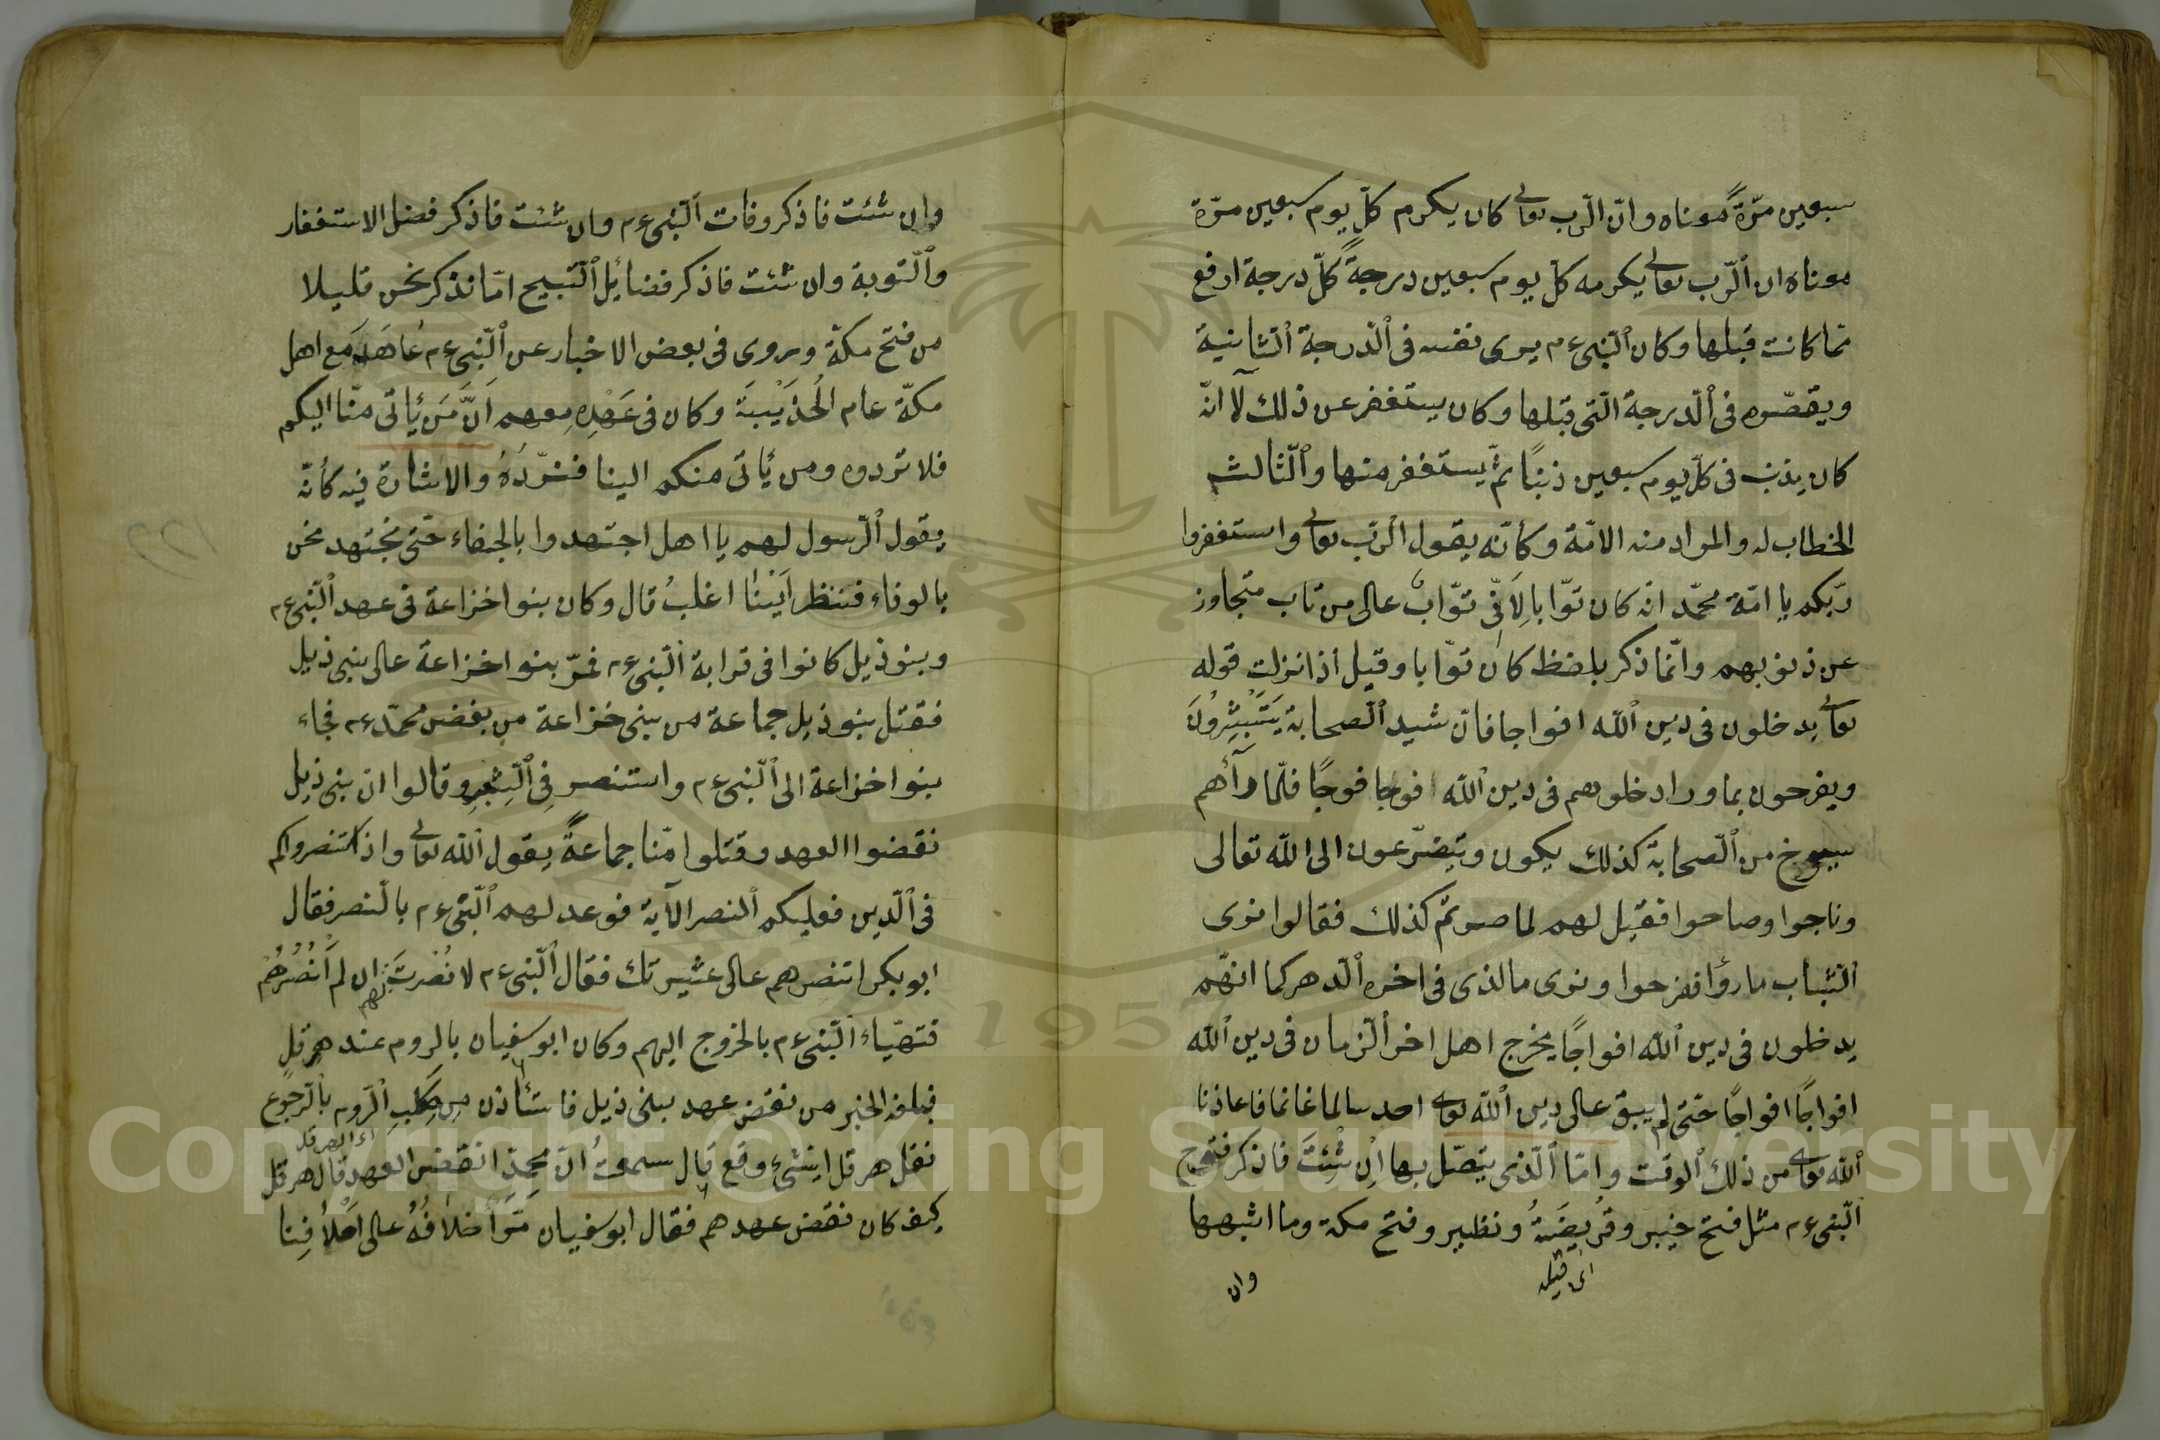 سبعين مرّةً معناه وانّ الرّب تعالى كان يكرم كلّ يوم سبعين مرّة
معناه ان الرّب تعالى يكرمه كلّ يوم سبعين درجةً كلّ درجة ارفع
مما كانت قبلها وكان النّبى ءم يرى نفسه فى الدّرجة الثّانية
ويقصّره فى الدّرجة الّتى قبلها وكان يستغفر عن ذلك لا انّه
كان يذنب فى كلّ يوم سبعين ذنبًا ثمّ يستغفر منها والثّالث
الخطاب له والمراد منه الامّة وكأنّه يقول الرّب تعالى واستغفروا
ربّكم يا امّة محمّد انّه كان توّابا لِاَنّى توّابٌ على من تاب متجاوز
عن ذنوبهم وانّما ذكر بلفظ كان توّابا وقيل اذا نزلت قوله
تعالى يدخلون فى دين اللّه افواجا فان شيد الصّحابة يَتَبْشِرُونَ
ويفرحون بما وراد خلوهم فى دين اللّه افوجا فوجًا فلمّا رآهم
سيوخ من الصّحابة كذلك يكون ويتضرّعون الى اللّه تعالى
وناجوا وصاحوا فقيل لهم لما صرتم كذلك فقالوا نوى
الشّباب ما رؤا ففرحوا ونوى مالذى فى اخره الدّهر كما انّهم
يدخلون فى دين اللّه افواجًا يخرج اهل اخر الزّمان فى دين اللّه
افواجًا افواجًا حتّى لم يبق على دين اللّه تعالى احد سالما غانما فاعاذنا
اللّه تعالى من ذلك الوقت وامّا الّذى يتصّل بها اِنْ شِئْتَ فاذكر فتوح
النّبى ءم مثل فتح خيبر وقُريضَةُ ونظير وفتح مكة وما اشبهها
اى قبيله
وان
وان شئت فاذكر وفات النّبى ءم وان شئت فاذكر فضل الاستغفار
والتّوبة وان شئت فاذكر فضائل التّسبيح امّا نذكر نحن قليلا
من فتح مكّة ويروى فى بعض الاخبار عن النّبى ءم عُاهَدَ مَع اهل
مكّة عام الحُدَيْبَة وكان فى عَهْدِهِ معهم اَنَّ مَنْ يأتى منّا اليكم
فلا تردوه ومن يأتى منكم الينا فنردّهُ والاشارة فيه كأنّه
يقول الرّسول لهم يا اهل اجتهدوا بالجفاء حتّى نجتهد نحن
بالوفاء فننظر اَيّنٰا اغلبُ قال وكان بنوا خزاعة فى عهد النّبى ءم
وبنو ذيل كانوا فى قرابة النّبى ءم فمرّ بنوا خزاعة على بنى ذيل
فقتل بنو ذيل جماعة من بنى خزاعة من بغض محمّد ءم فجاء
بنوا خزاعة الى النّبى ءم واستنصر فِى الشِعْرِ وقالوا ان بنى ذيل
نقضوا العهد وقتلوا منّا جماعةً يقول اللّه تعالى واذ استنصروكم
فى الدّين فعليكم النصر الآية فوعد لهم النّبى ءم بالنّصر فقال
ابو بكر اتنصرهم على عشيرتك فقال النّبى ءم لا نُصْرتَ ان لم اَنْصُرْهُمْ
فتهيّاء النّبى ءم بالخروج اليهم وكان ابو سفيان بالروم عند هرقل
فبلغه الخبر من نقض عهد بينى ذيل فاستأذن مِن كلبِ الرّوم بالرّجوع
اى الهرقل
فقل هرقل ايش وقع قال سمعتُ انّ محمدٰا نقض العهد قال هرقل
كيف كان نقض عهدهم فقال ابو سفيان مَرَّ اَحْلاٰفُهُ على اَحْلاٰفِنا